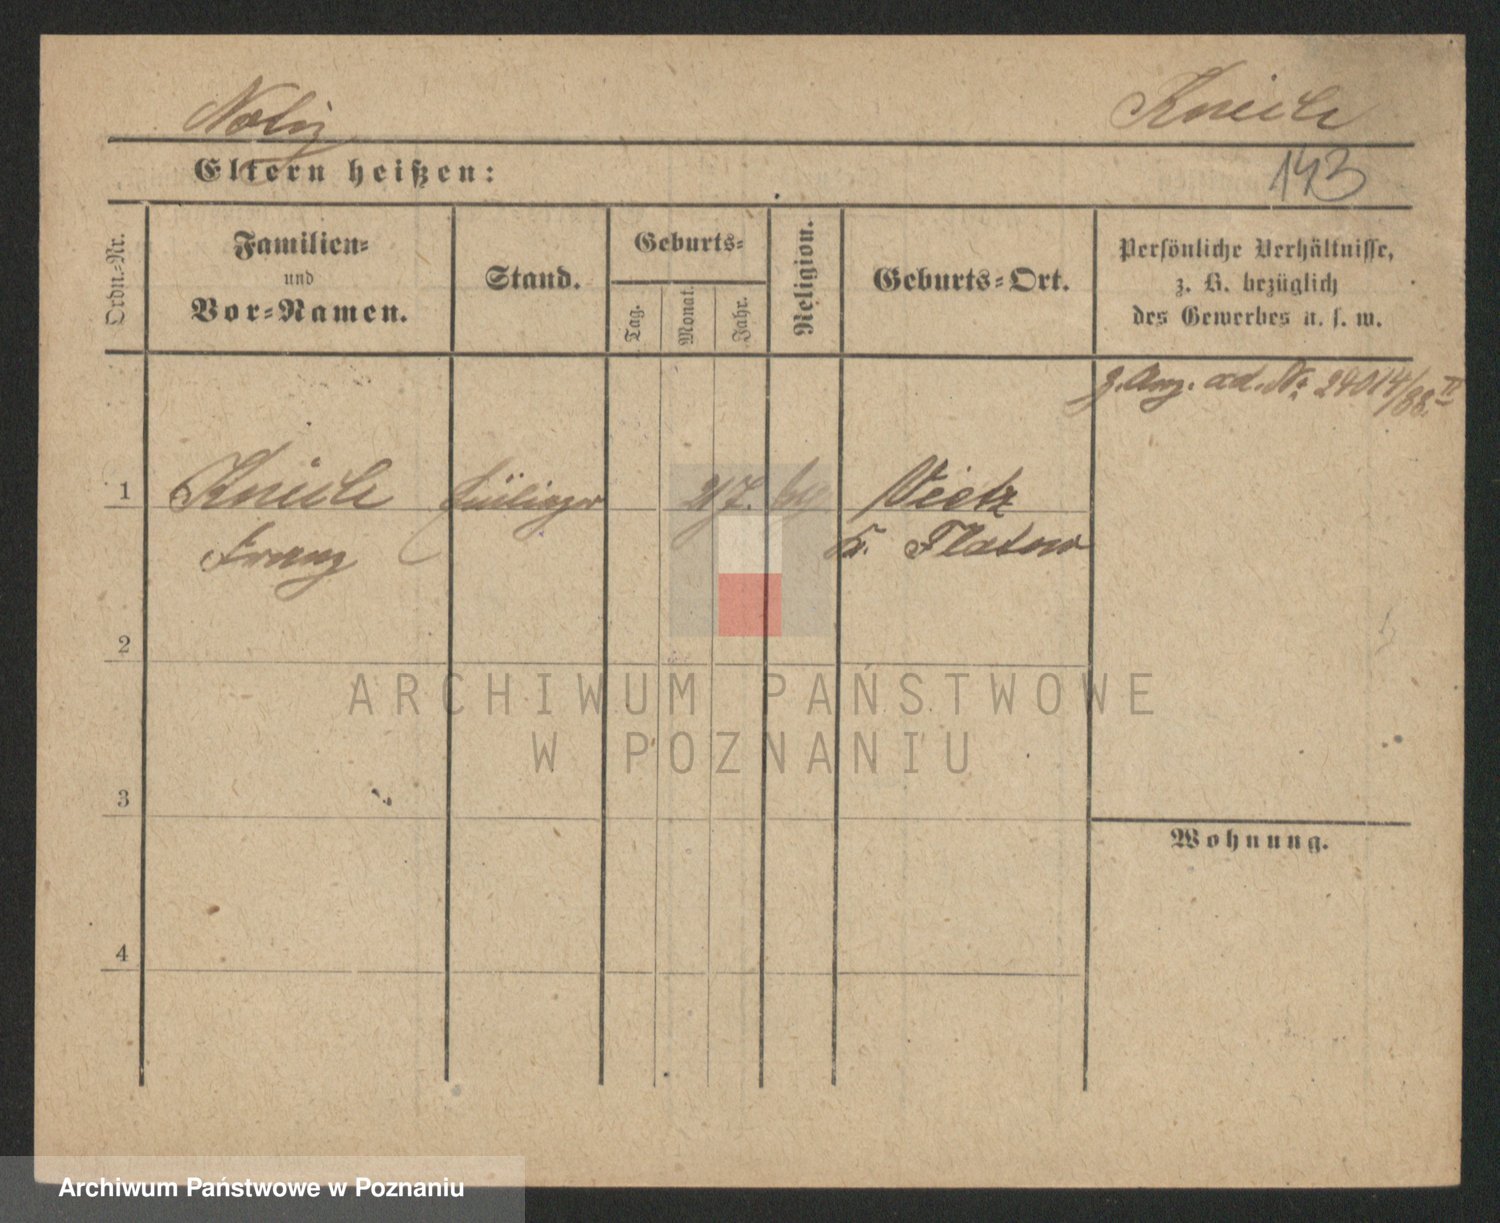 Notiz
Knech
Eltern heißen:
143
Ordn.-Nr.
Familien-
und
Vor-Namen.
Stand.
Geburts-
Tag.
Monat.
Jahr.
Religion.
Geburts-Ort.
Persönliche Verhältnisse,
z. B. bezüglich
des Gewerbes u. s. w.
z. Anz. ad. No 24014/88. II
1
21/7. 69
Vietz
Franz
Kr. Flatow
2
ARCHIWUM PAŃSTWOWE
W POZNANIU
3
Wohnung.
4
Archiwum Państwowe w Poznaniu